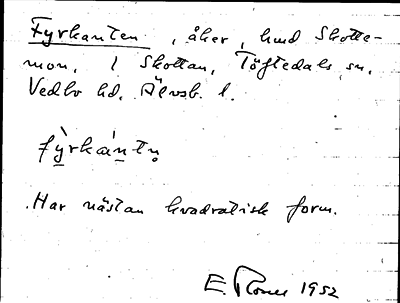 Fyrkanten, åker, hmd Skotte-
mon, 1 Skottan, Töftedals sn,
Vedbo hd, Älvsb. l.
fỳrkántn̥
Har nästan kvadratisk form.
E. 1952